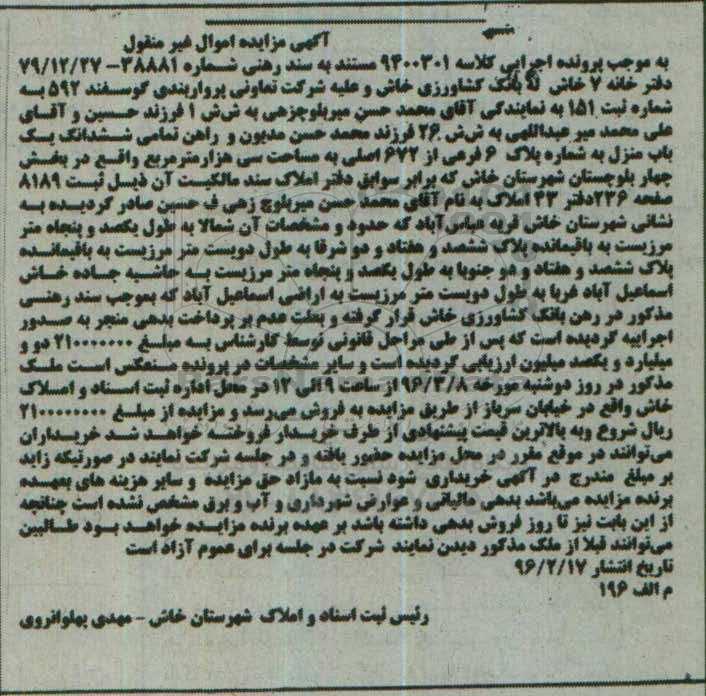 آگهی مزایده اموال غیر منقول
به موجب پرونده اجرایی کلاسه ۹۴۰۰۳۰۱ مستند به سند رهنی شماره ۳۸۸۸۱- ۷۹/۱۲/۲۷
دفتر خانه ۷ خاش له بانک کشاورزی خاش و علیه شرکت تعاونی پرواربندی گوسفند ۵۹۲ به
شماره ثبت ۱۵۱ به نمایندگی آقای محمد حسن میربلوچزهی به ش ش ۱ فرزند حسین و آقای
علی محمد میر عبداللهی به ش ش ۲۶ فرزند محمد حسن مدیون و راهن تمامی ششدانگ یک
باب منزل به شماره پلاک ۶ فرعی از ۶۷۲ اصلی به مساحت سی هزار متر مربع واقع در بخش
چهار بلوچستان شهرستان خاش که برابر سوابق دفتر املاک سند مالکیت آن ذیل ثبت ۸۱۸۹
صفحه ۲۳۶ دفتر ۴۳ املاک به نام آقای محمد حسن میربلوچ زهی ف حسین صادر گردیده به
نشانی شهرستان خاش قریه عباس آباد که حدود و مشخصات آن شمالا به طول یکصد و پنجاه متر
مرزیست به باقیمانده پلاک ششصد و هفتاد و دو شرقا به طول دویست متر مرزیست به باقیمانده
پلاک ششصد و هفتاد و دو جنوبا به طول یکصد و پنجاه متر مرزیست به حاشیه جاده خاش
اسماعیل آباد غربا به طول دویست متر مرزیست به اراضی اسماعیل آباد که بموجب سند رهنی
مذکور در رهن بانک کشاورزی خاش قرار گرفته و بعلت عدم بر پرداخت بدهی منجر به صدور
اجراییه گردیده است که پس از طی مراحل قانونی توسط کارشناس به مبلغ ۲۱۰۰۰۰۰۰۰ دو و
میلیارد و یکصد میلیون ارزیابی گردیده است و سایر مشخصات در پرونده منعکس است ملک
مذکور در روز دوشنبه مورخه ۹۶/۳/۸ از ساعت ۹ الی ۱۲ در محل اداره ثبت اسناد و املاک
خاش واقع در خیابان سرباز از طریق مزایده به فروش می‌رسد و مزایده از مبلغ ۲۱۰۰۰۰۰۰۰۰
ریال شروع وبه بالاترین قیمت پیشنهادی از طرف خریدار فروخته خواهد شد خریداران
می‌توانند در موقع مقرر در محل مزایده حضور یافته و در جلسه شرکت نمایند در صورتیکه زاید
بر مبلغ مندرج در آگهی خریداری شود نسبت به مازاد حق مزایده و سایر هزینه های بعهده
برنده مزایده می‌باشد بدهی مالیاتی و عوارض شهرداری و آب و برق مشخص نشده است چنانچه
از این بابت نیز تا روز فروش بدهی داشته باشد بر عهده برنده مزایده خواهد بود طالبین
می‌توانند قبلا از ملک مذکور دیدن نمایند شرکت در جلسه برای عموم آزاد است
تاریخ انتشار ۹۶/۲/۱۷
م الف ۱۹۶
رئیس ثبت اسناد و املاک شهرستان خاش - مهدی پهلوانروی